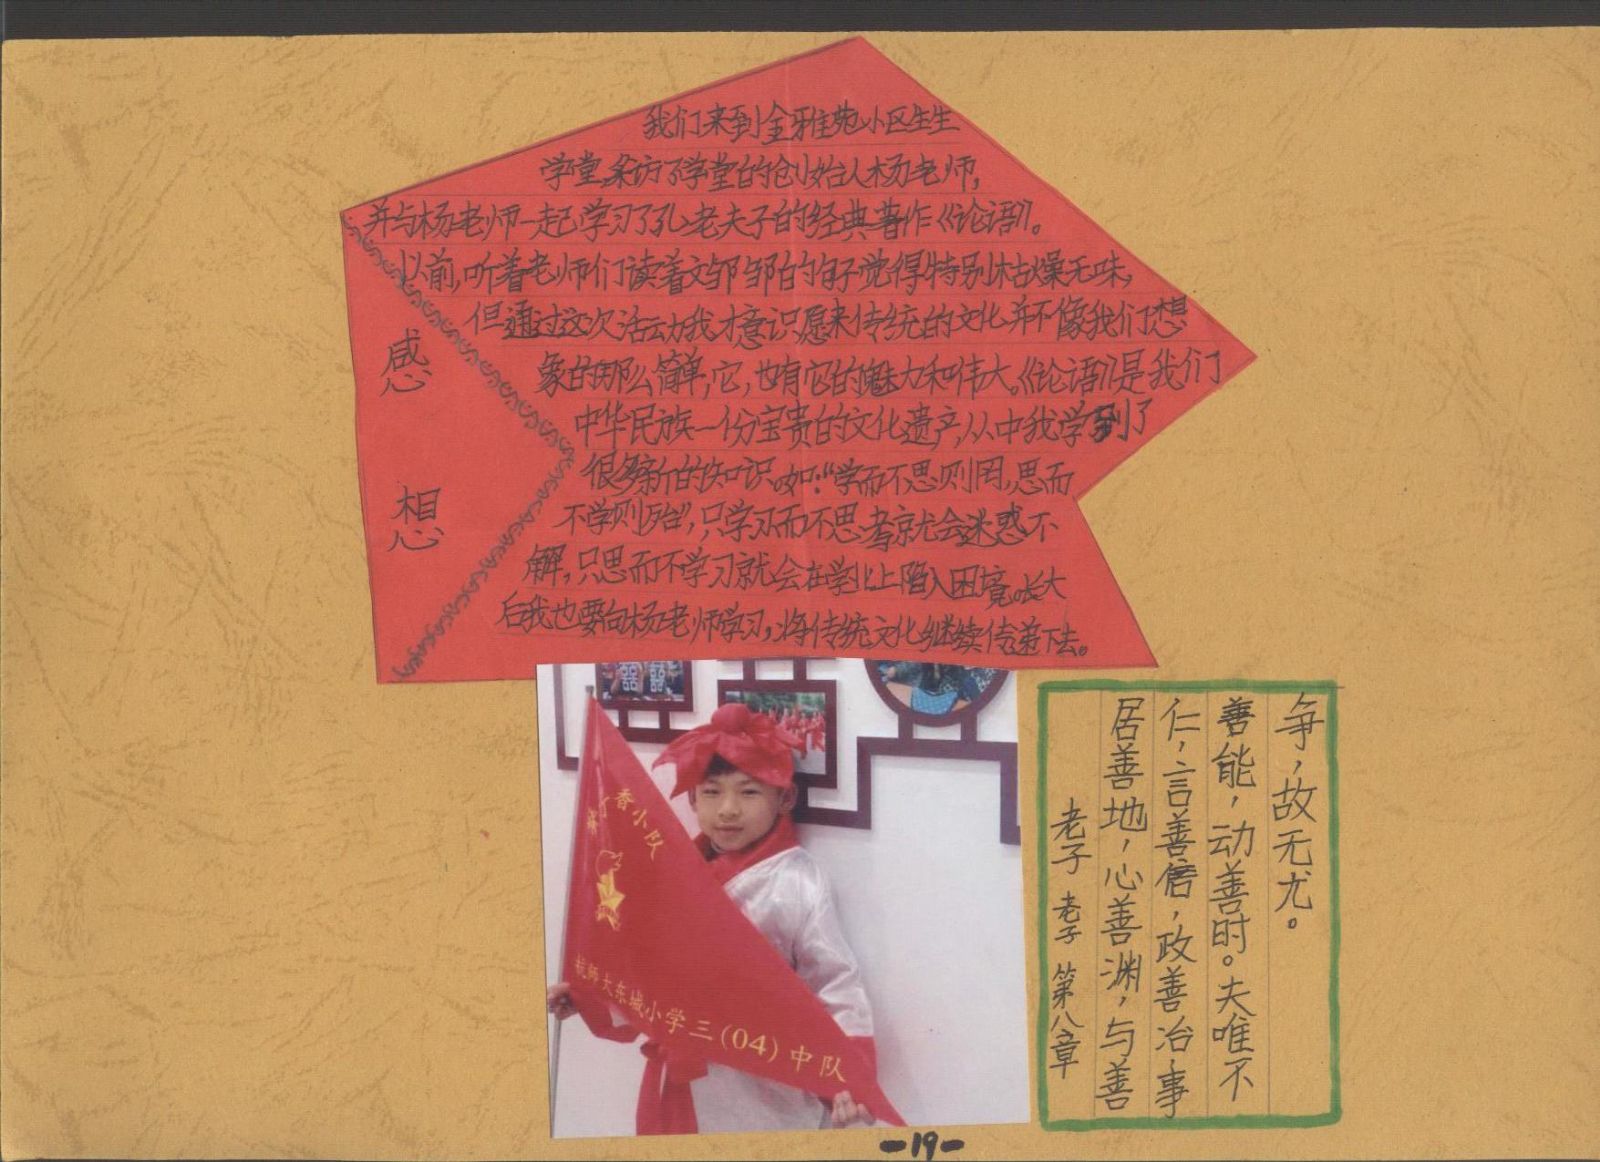 我们来到金雅苑小区生生
学堂,采访了学堂的创始人杨老师,
并与杨老师一起学习了孔老夫子的经典著作《论语》。
以前,听着老师们读着文邹邹的句子觉得特别枯燥无味,
但通过这次活动我才意识愿来传统的文化并不像我们想
象的那么简单,它,也有它的魅力和伟大。《论语》是我们
中华民族一份宝贵的文化遗产,从中我学到了
很多新的知识。如:“学而不思则罔,思而
不学则殆”,只学习而不思考就会迷惑不
解,只思而不学习就会在学业上陷入困境。长大
后我也要向杨老师学习,将传统文化继续传递下去。
感想
香小队
杭师大东城小学三(04)中队
争,故无尤。
善能,动善时。夫唯不
仁,言善信,政善治,事
居善地,心善渊,与善
老子 老子 第八章
-19-